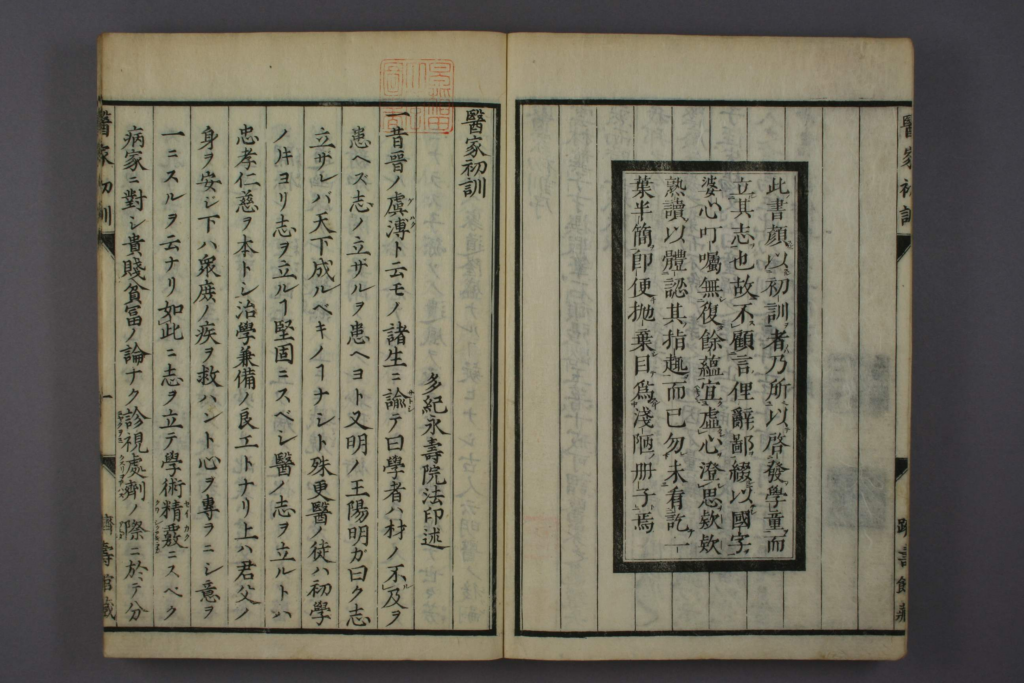 此書顏以初訓者乃所以啓發學童而
立其志也故不顧言俚辭鄙綴以國字
婆心叮囑無復餘蘊宜虛心澄思欵欵
熟讀以體認其指趣而已勿未看訖一
葉半簡卽便抛棄目爲淺陋册子焉
醫家初訓
醫家初訓
多紀永壽院法印述
一昔晉ノ虞溥ト云モノ諸生ニ諭テ曰學者ハ材ノ不及ヲ
患ヘズ志ノ立ザルヲ患ヘヨト又明ノ王陽明ガ曰ク志
立ザレバ天下成ルベキノヿナシト殊更醫ノ徒ハ初學
ノ片ヨリ志ヲ立ルヿ堅固ニスベシ醫ノ志ヲ立ルトハ
忠孝仁慈ヲ本トシ治學兼備ノ良工トナリ上ハ君父ノ
身ヲ安シ下ハ衆庶ノ疾ヲ救ハント心ヲ專ヲニシ意ヲ
一ニスルヲ云ナリ如此ニ志ヲ立テ學術精覈ニスベク
病家ニ對シ貴賤貧富ノ論ナク診視處劑ノ際ニ於テ分
醫家初訓
一
躋壽館藏